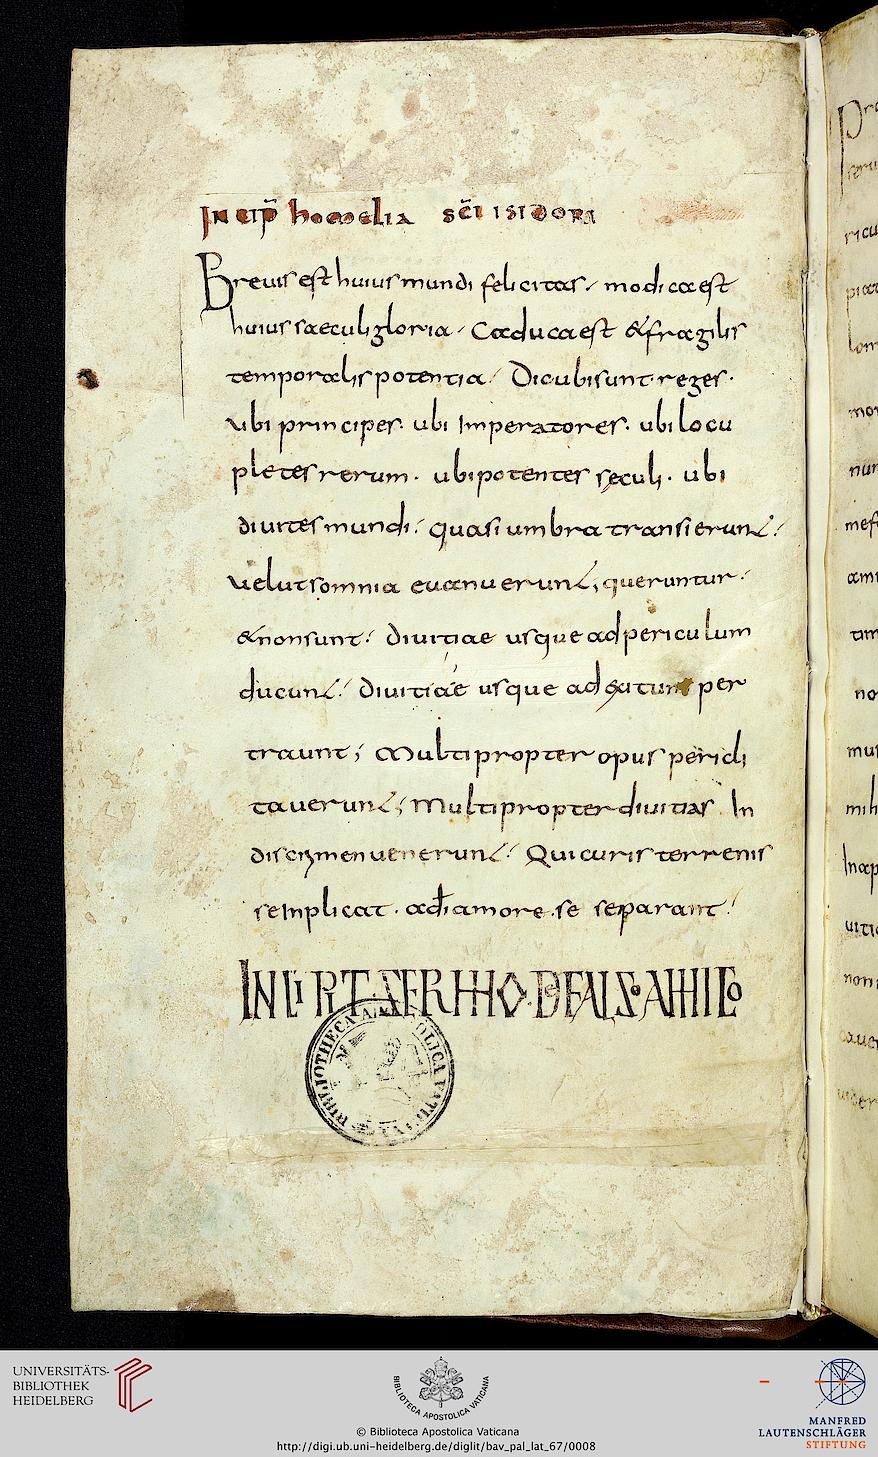 Incip̄ homelia sc̄i isidori
Breuis est huius mundi felicitas, modica est
huius saeculi gloria, Caduca est & fragilis
temporalis potentia. Dic ubi sunt reges.
Ubi principes. ubi Imperatores. ubi locu
pletes rerum. ubi potentes seculi. ubi
diuites mundi. quasi umbra transierunt.
Uelut somnia euanuerunt, queruntur.
& non sunt. diuitiae usque ad periculum
ducunt. diuitiae usque ad per
traunt; Multi propter opus pericli
tauerunt; Multi propter diuitias In
discrimen uenerunt. Qui curis terrenis
se Inplicat. a dī amore se separant.
INCIPIT SERMO DE FALSO AMICO
BIBLIOTHECA APOSTOLICA VATICANA
UNIVERSITÄTS-
BIBLIOTHEK
HEIDELBERG
BIBLIOTECA APOSTOLICA VATICANA
© Biblioteca Apostolica Vaticana
http://digi.ub.uni-heidelberg.de/diglit/bav_pal_lat_67/0008
MANFRED
LAUTENSCHLÄGER
STIFTUNG